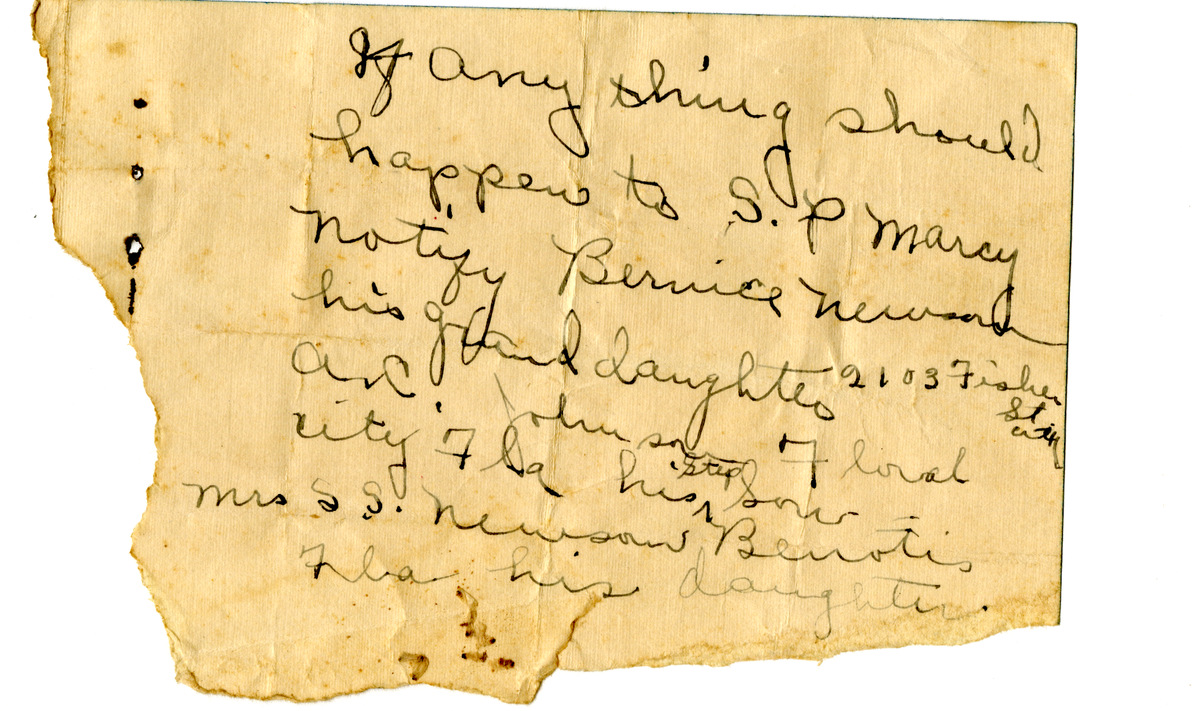 If Any thing should
happen to S. P Marcy
Notify Bernice Newsom
his grand daughter 2103 Fisher
St city
A. C. Johnson Floral
city Fla his step son
Mrs S S. Newsom Benotis
Fla his daughter.